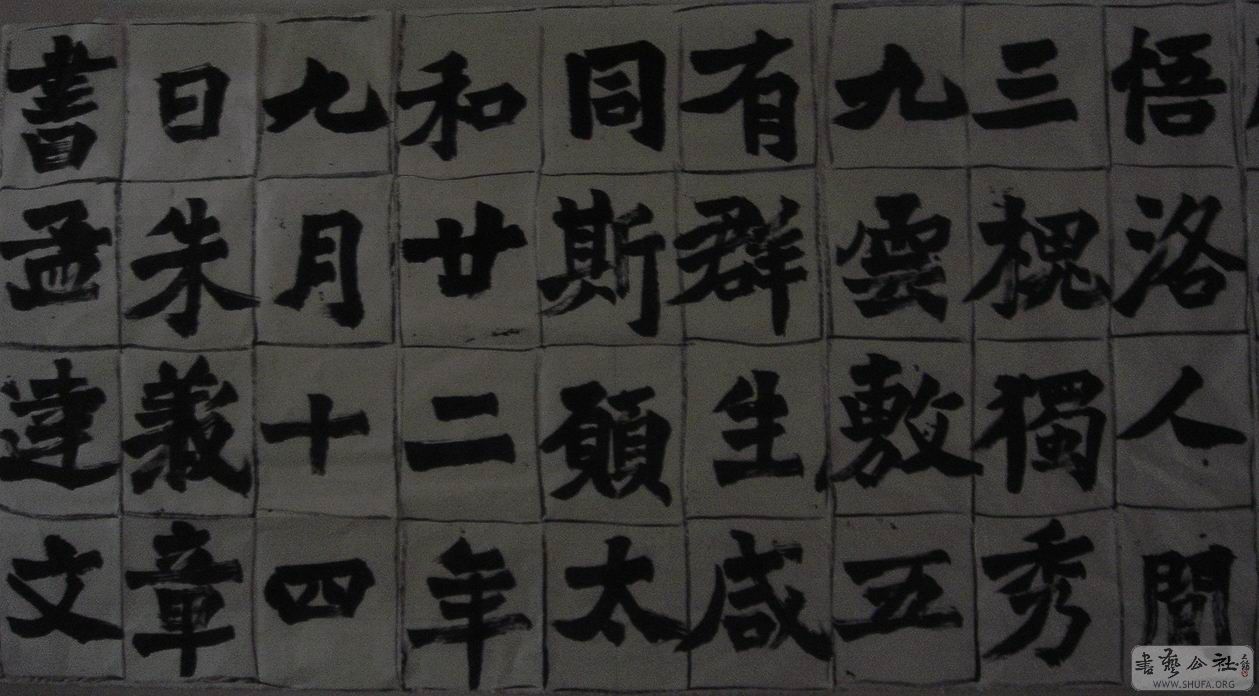 悟洛人間
三槐獨秀
九雲敷五
有群生咸
同斯願太
和廿二年
九月十四
日朱義章
書孟達文
書藝公社
WWW.SHUFA.ORG